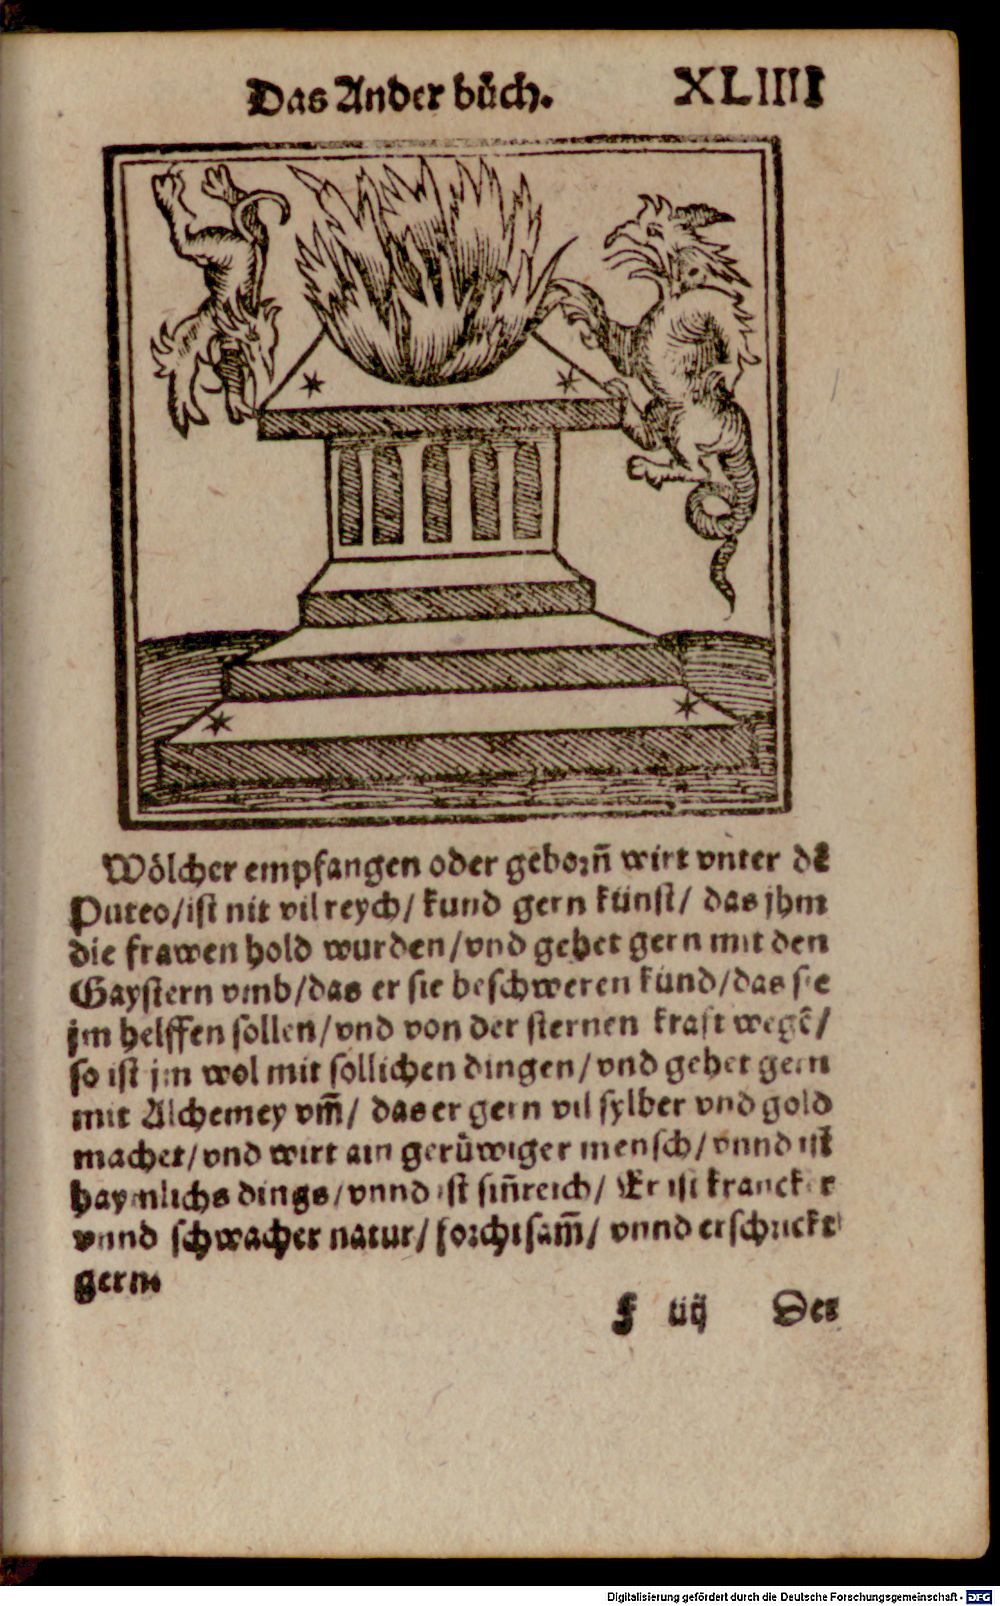 Das Ander bůch. XLIIII
Wölcher empfangen oder geborñ wirt vnter dẽ
Puteo/ist nit vil reych/ kund gern künst/ das jhm
die frawen hold wurden/vnd gehet gern mit den
Gaystern vmb/das er sie beschweren künd/das sie
jm helffen sollen/vnd von der sternen krafft wegẽ/
so ist jm wol mit sollichen dingen/vnd gehet gern
mit Alchemey vm̃/ das er gern vil sylber vnd gold
machet/vnd wirt ain gerůwiger mensch/vnnd ist
haymlichs dings/vnnd ist siñreich/ Er ist krancker
vnnd schwacher natur/forchtsam̃/ vnnd erschrickt
gern.
f iiij Der
Digitalisierung gefördert durch die Deutsche Forschungsgemeinschaft - DFG